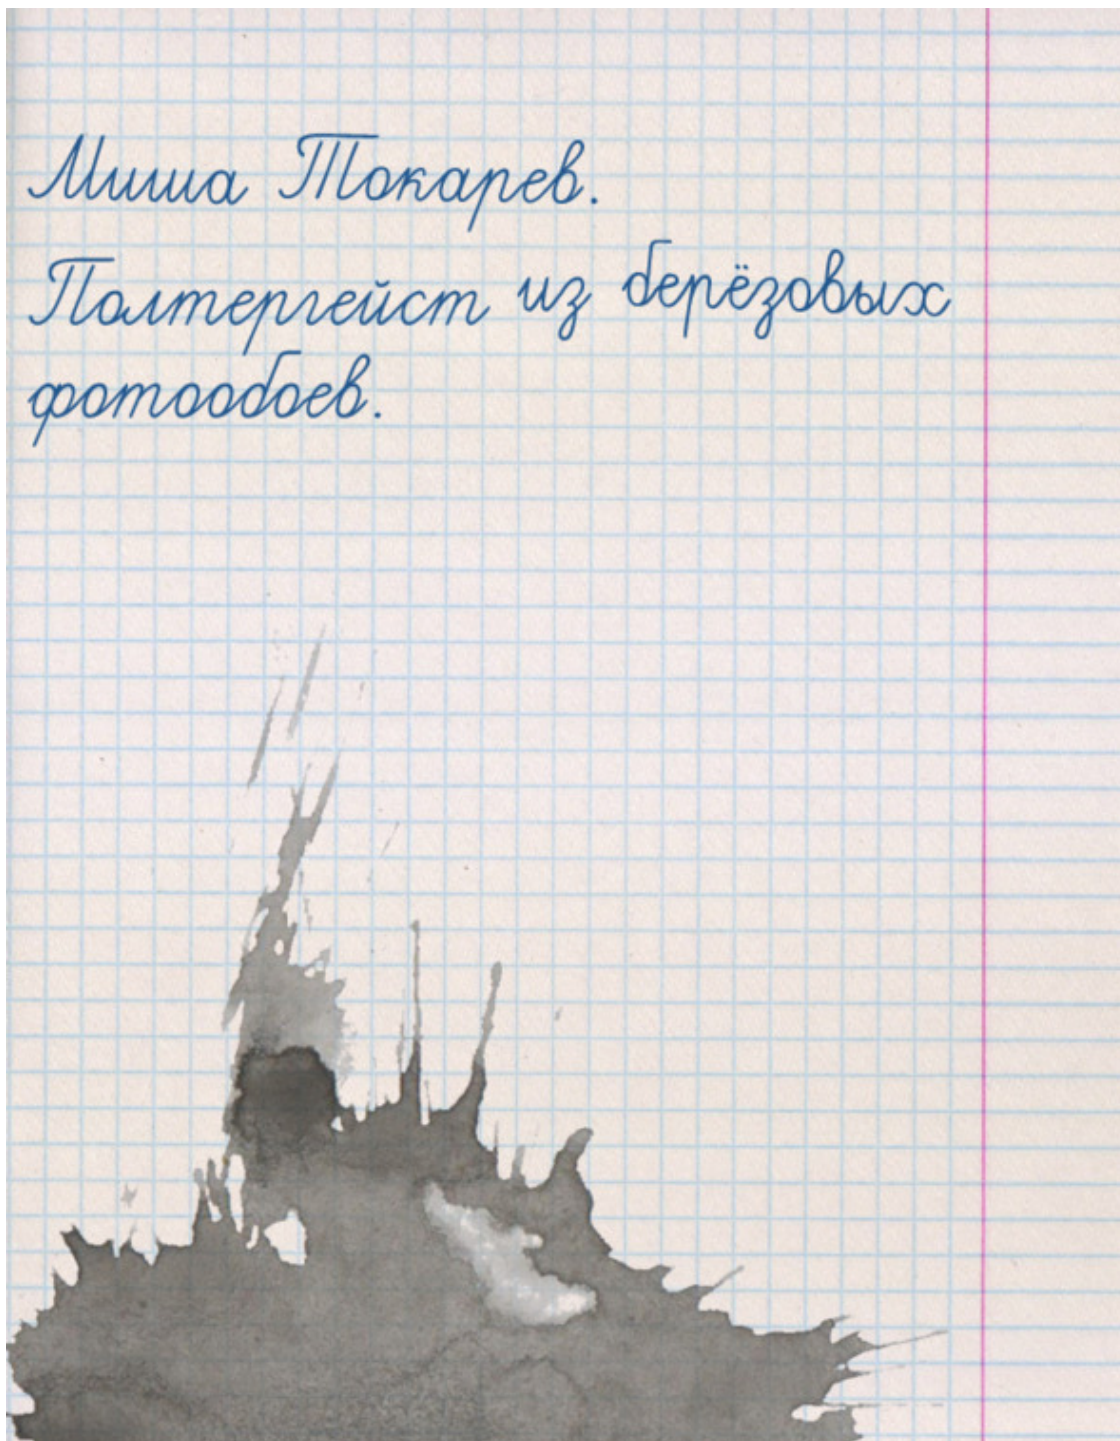 Миша Токарев.
Полтергейст из берёзовых
фотообоев.